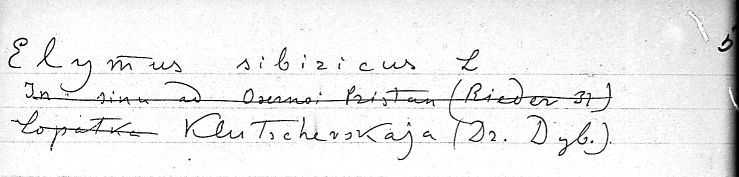 Elymus sibiricus L
In sinu ad Osernoi Pristan (Rieder 31)
Lopatka Klutschevskaja (Dr. Dyb.)
5